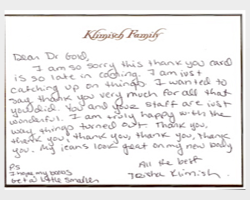 Klimisch Family
Dear Dr Gord,
I am so sorry this thank you card
is so late in coming. I am just
catching up on things. I wanted to
say thank you very much for all that
you did. You and your staff are just
wonderful. I am truly happy with the
way things turned out. Thank you,
thank you, thank you, thank you, thank
you. My jeans look great on my new body
All the best
Klimisch.
PS
I hope my boobs
get a little smaller